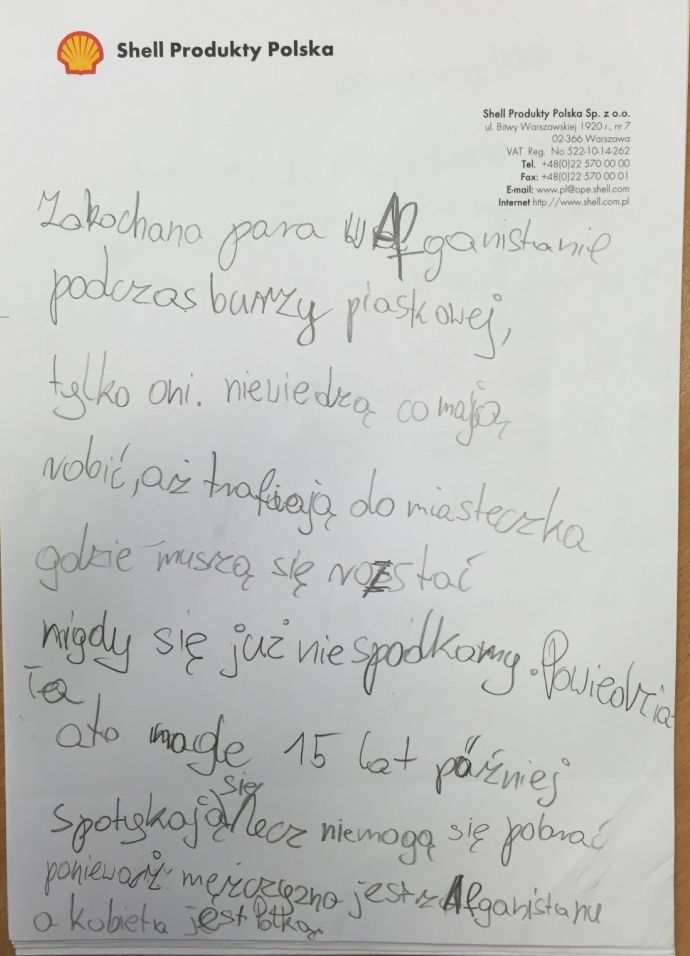 Shell Produkty Polska
Shell Produkty Polska Sp. z o.o.
ul. Bitwy Warszawskiej 1920 r., nr 7
02-366 Warszawa
VAT Reg. No 522-10-14-262
Tel. +48(0)22 570 00 00
Fax: +48(0)22 570 00 01
E-mail: www.pl@ope.shell.com
Internet http://www.shell.com.pl
Zakochana para w Afganistanie
podczas burzy piaskowej,
tylko oni. niewiedzą co mają,
robić, aż trafieają do miasteczka
gdzie muszą się rozstać
nigdy się już nie spodkamy. Powiedzia
Ta
ato nagle 15 lat później
się
spotykają lecz niemogą się pobrać
poniewarz mężczyzna jest z Afganistanu
a kobieta jest Polką.